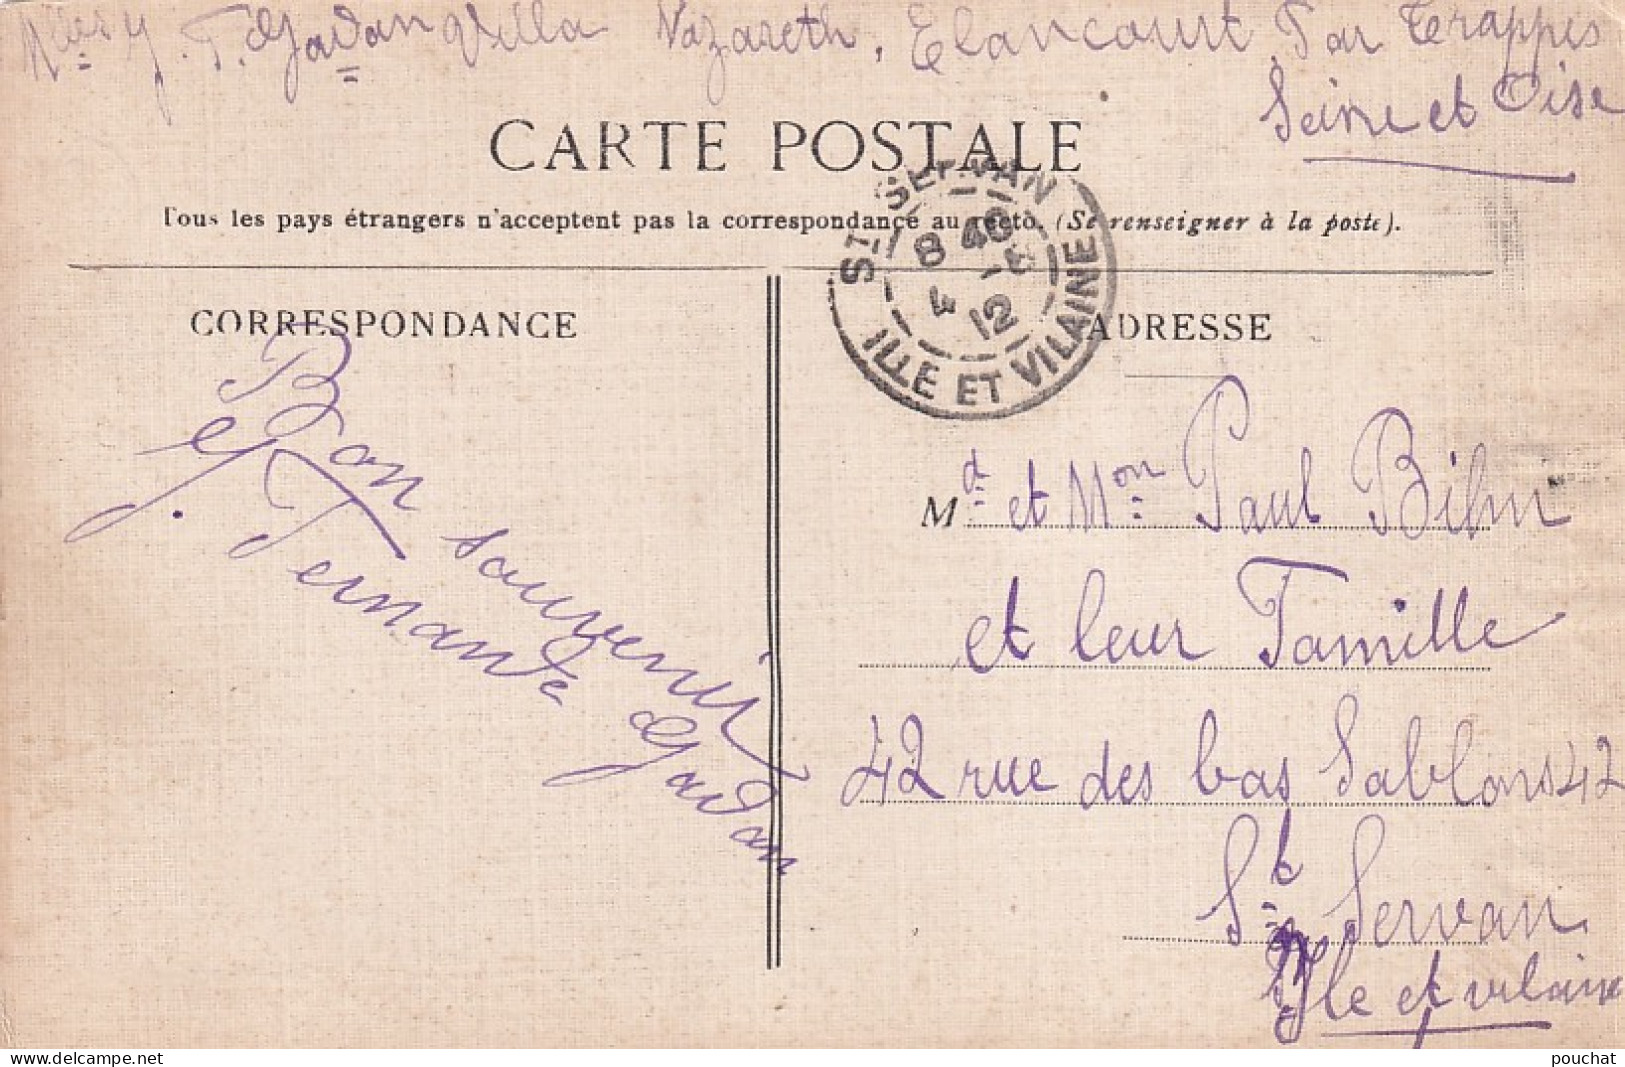 Villa Nazareth, Elancourt Par Trappes
Seine et Oise
CARTE POSTALE
Tous les pays étrangers n'acceptent pas la correspondance au recto. (Se renseigner à la poste).
ST SERVAN
8 40
4 - 12
ILLE ET VILAINE
CORRESPONDANCE
Bon souvenir
Fernande
ADRESSE
Md et Mon Paul
et leur Famille
42 rue des bas Sablons 42
St Servan
Ile et vilaine
www.delcampe.net
pouchat